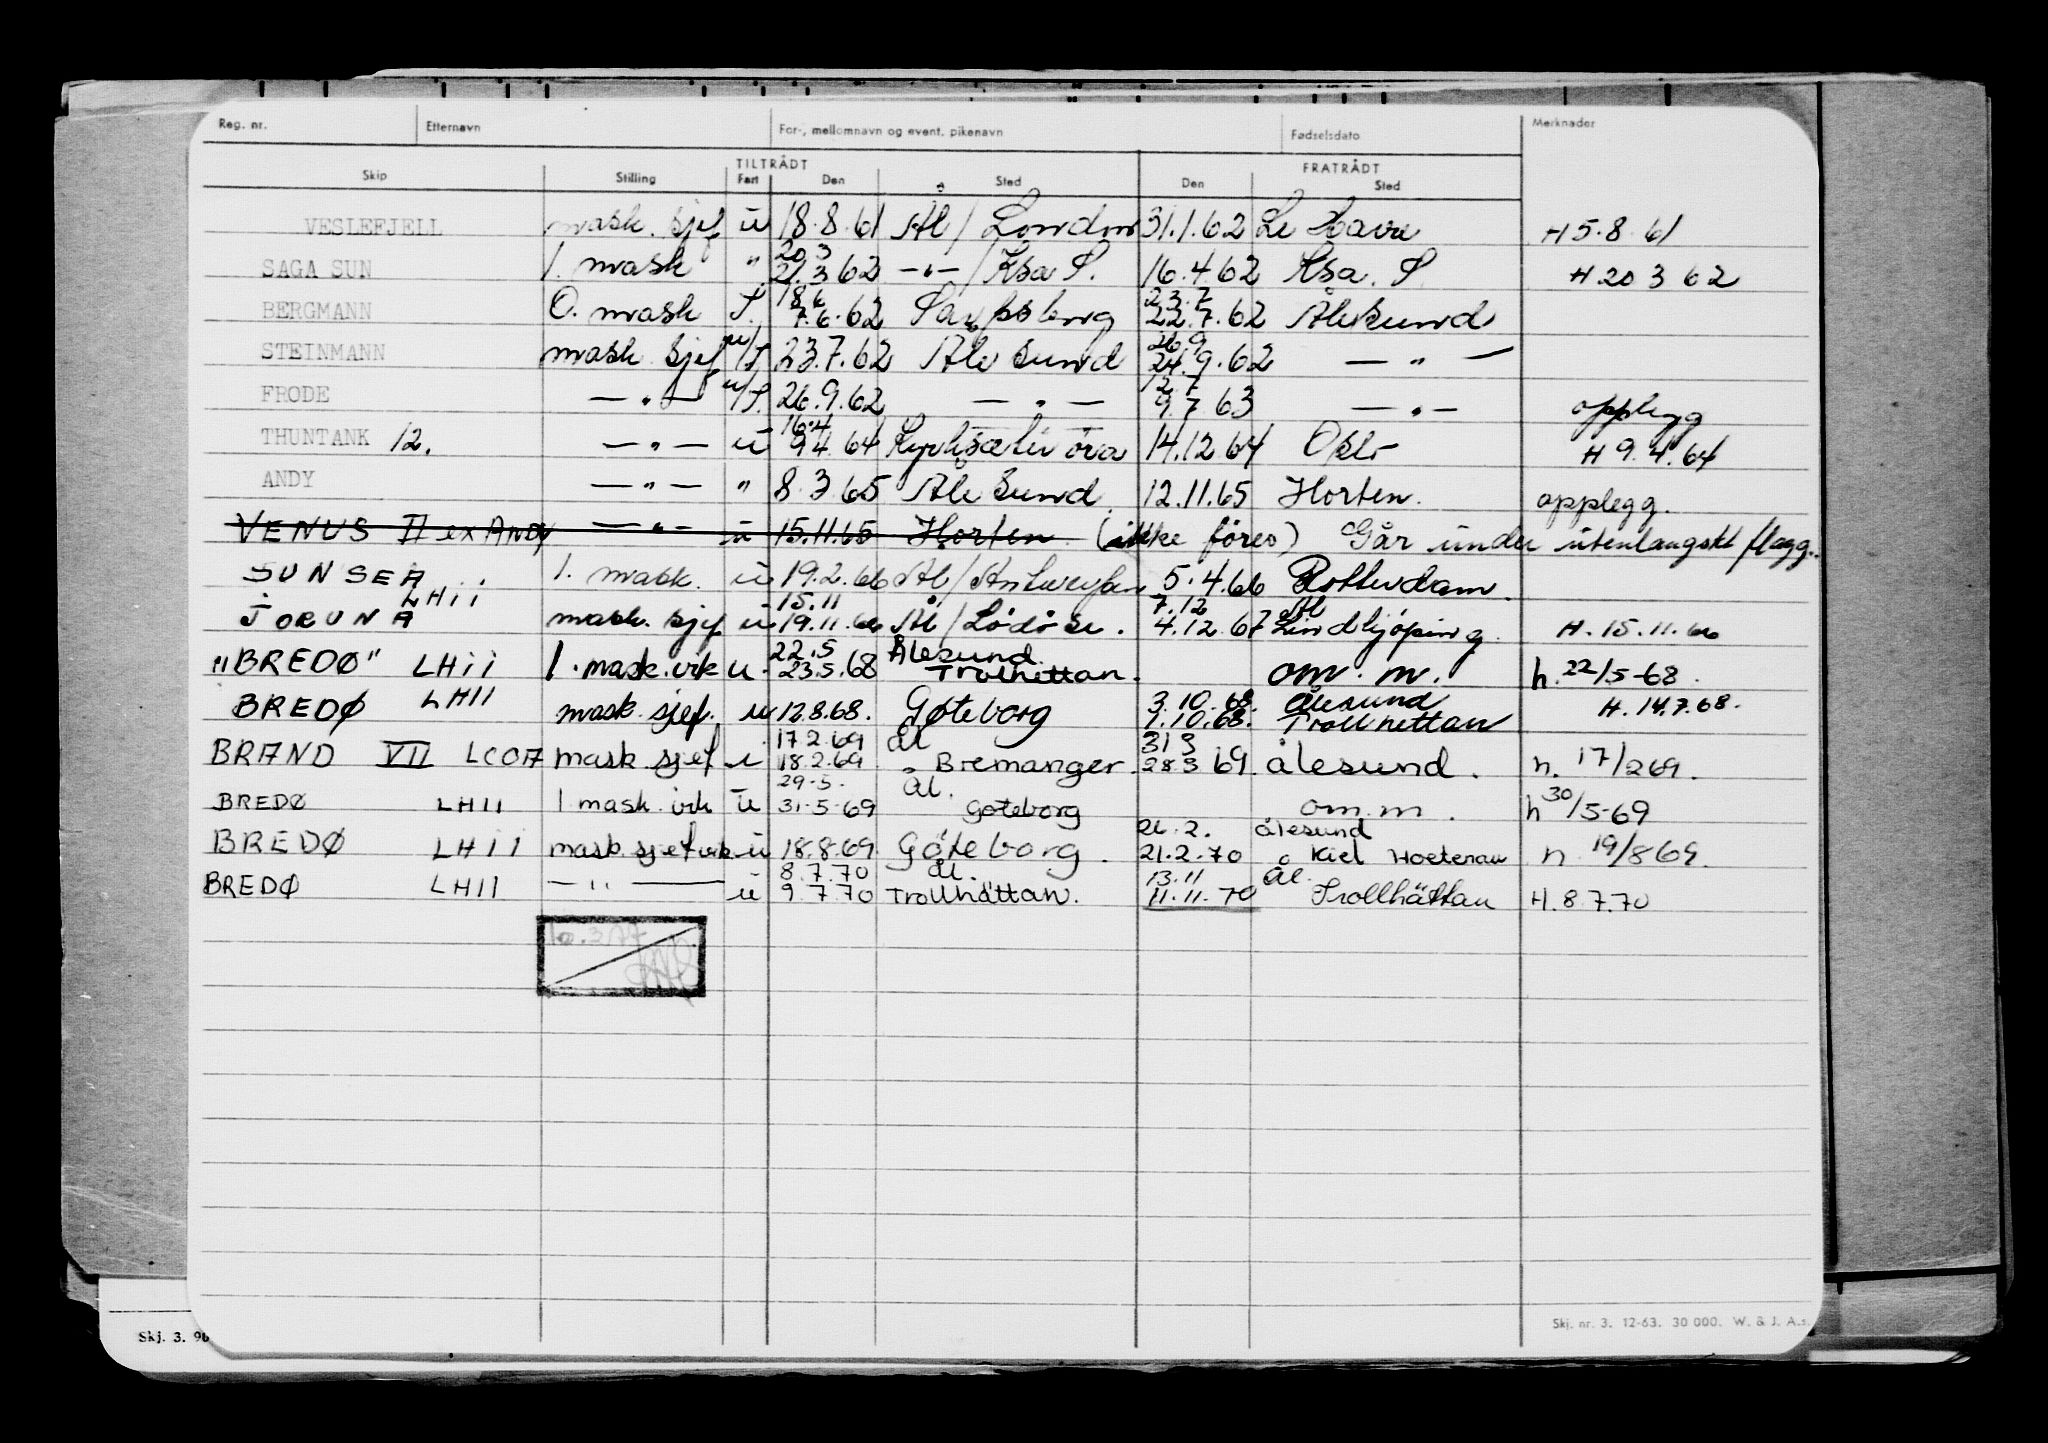 Reg. nr. Etternavn For-, mellomnavn og event. pikenavn Fødselsdato Merknader
TILTRÅDT FRATRÅDT
Skip Stilling Fart Den Sted Den Sted
VESLEFJELL mask. sjef u 18.8.61 Ål / London 31.1.62 Le Havre H 5.8.61
20.3
SAGA SUN 1. mask " 21.3.62 —"— / Ksa S. 16.4.62 Ksa. S H 20 3 62
18.6 23.7
BERGMANN O. mask I. 7.6.62 Sarpsborg 22.7.62 Ålesund
26.9
STEINMANN mask sjef u/I 23.7.62 Ålesund 24.9.62 — " —
12.7
FRODE — " — u/I. 26.9.62 — " — 9 7 63 — " — opplegg
16.4
THUNTANK 12. — " — u 9 4. 64 Kyrksæterøra 14.12 64 Oslo H 9.4.64
ANDY — " — " 8.3.65 Ålesund 12.11.65 Horten. opplegg.
VENUS II ex ANDY — " — u 15.11.65 Horten (ikke føres) Går under utenlangskt flagg.
SUNSEA 1. mask. u 19.2.66 Ål / Antwerpen 5.4.66 Rotterdam.
LHii 15.11 7.12 Ål
JORUNA mask. sjef u 19.11.66 Ål / Lödöse. 4.12.67 Lindkjöping. H. 15.11.66
22.5 Ålesund
"BREDØ" LHii 1. mask. vik u. 23.5.68 Trolhettan. om. m. h. 22/5-68.
3.10.68. Ålesund
BREDØ LHII mask. sjef. u 12.8.68. Gøteborg 1.10.68. Trollhettan H. 14.7.68.
17.2.69 Ål 31 3
BRAND VII LCOA mask. sjef u 18.2.69 Bremanger. 28 3 69. ålesund. h. 17/2 69.
29-5. Ål.
BREDØ LHII 1 mask. vik u 31-5-69 Gøteborg om. m. h 30/5-69
26.2. ålesund
BREDØ LHii mask. sjef vik u 18.8.69 Göteborg. 21.2.70 Kiel Hoetenau h 19/8 69.
8.7.70 Ål. 13.11 Ål.
BREDØ LHII — " — u 9.7.70 Trollhättan. 11.11.70 Trollhättan H. 8.7.70
Skj. nr. 3. 12-63. 30 000. W. & J. A.s.
Skj. 3. 96